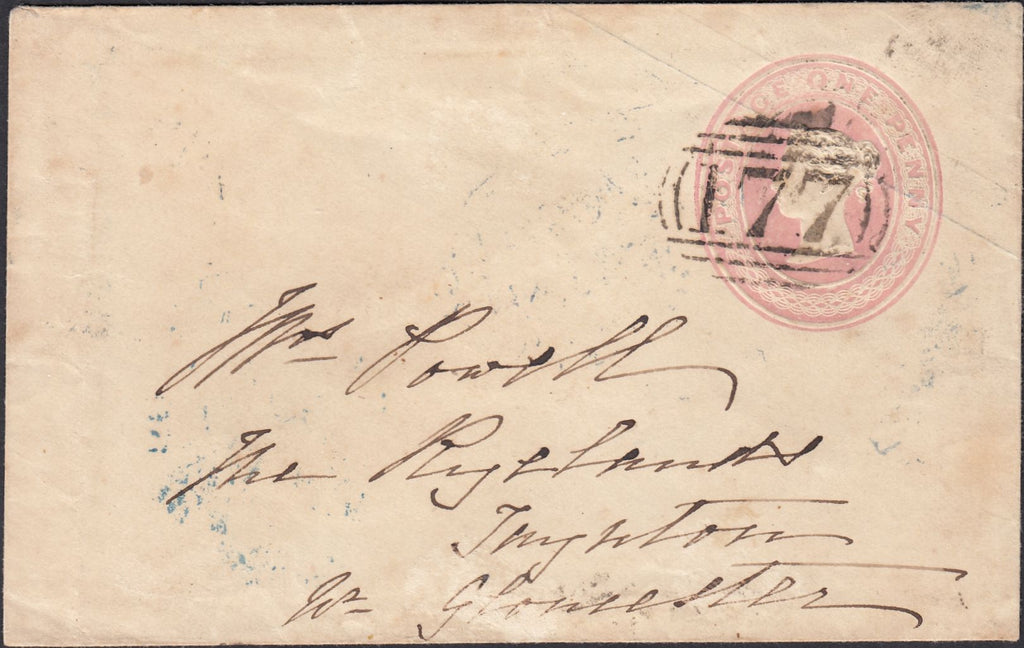 POSTAGE ONE PENNY
177
Mrs Powell
The Ryelands
Taynton
Nr Gloucester